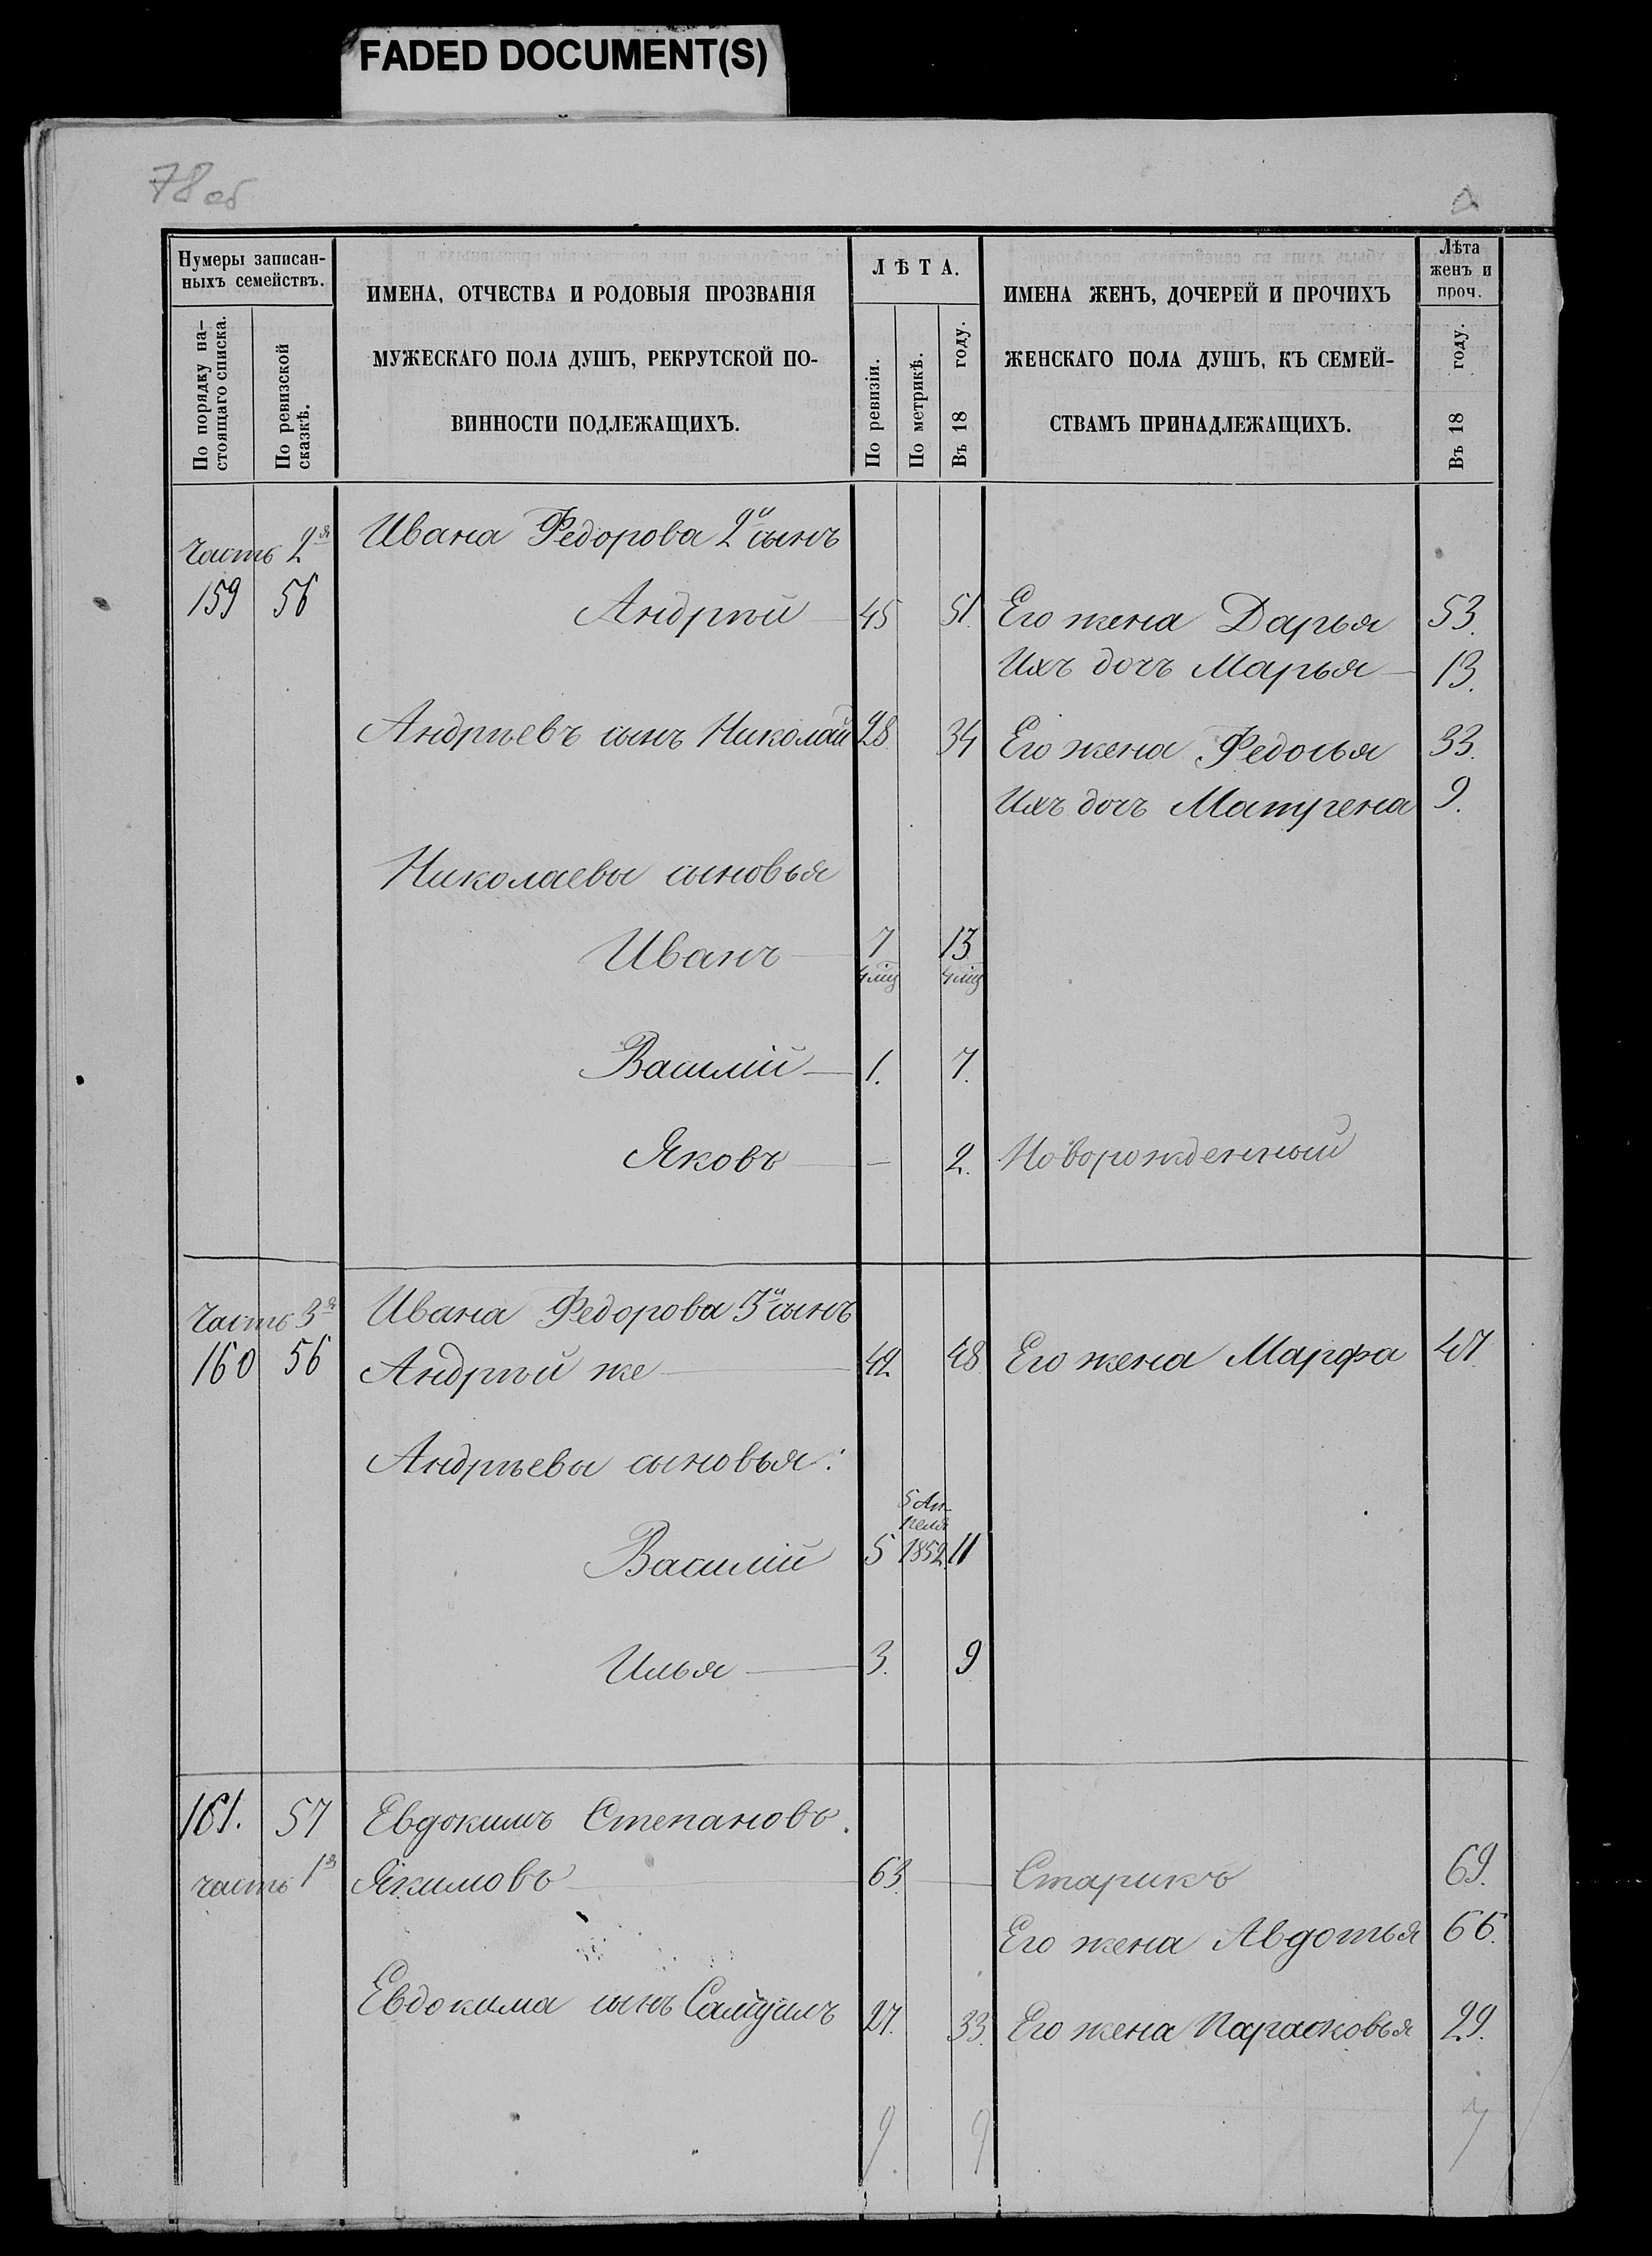 FADED DOCUMENT(S)
78 об
Нумеры записан-
ныхъ семействъ.
По порядку на-
стоящаго списка.
По ревизской
сказкѣ.
ИМЕНА, ОТЧЕСТВА И РОДОВЫЯ ПРОЗВАНІЯ
МУЖЕСКАГО ПОЛА ДУШЪ, РЕКРУТСКОЙ ПО-
ВИННОСТИ ПОДЛЕЖАЩИХЪ.
ЛѢТА.
По ревизіи.
По метрикѣ.
Въ 18 году.
ИМЕНА ЖЕНЪ, ДОЧЕРЕЙ И ПРОЧИХЪ
ЖЕНСКАГО ПОЛА ДУШЪ, КЪ СЕМЕЙ-
СТВАМЪ ПРИНАДЛЕЖАЩИХЪ.
Лѣта
женъ и
проч.
Въ 18 году.
Часть 2я Ивана Федорова 2й сынъ
159 56 Андрѣй 45 51. Его жена Дарья 53.
Ихъ дочь Марья — 13.
Андрѣевъ сынъ Николай 28. 34 Его жена Федосья 33.
Ихъ дочь Матрена 9.
Николаевы сыновья
Иванъ — 7 13
4 мѣц 4 мѣц
Василій — 1. 7.
Яковъ — — 2. Новорожденный
Часть 3я Ивана Федорова 3й сынъ
160 56 Андрѣй же — 42 48 Его жена Марфа 47.
Андрѣевы сыновья:
5 Ап-
реля
Василій 5 1852. 11
Илья — 3. 9
161. 57 Евдокимъ Степановъ.
часть 1я Якимовъ — 63. — Старикъ 69.
Его жена Авдотья 66.
Евдокима сынъ Самуилъ 27. 33. Его жена Парасковья 29.
9 9 7